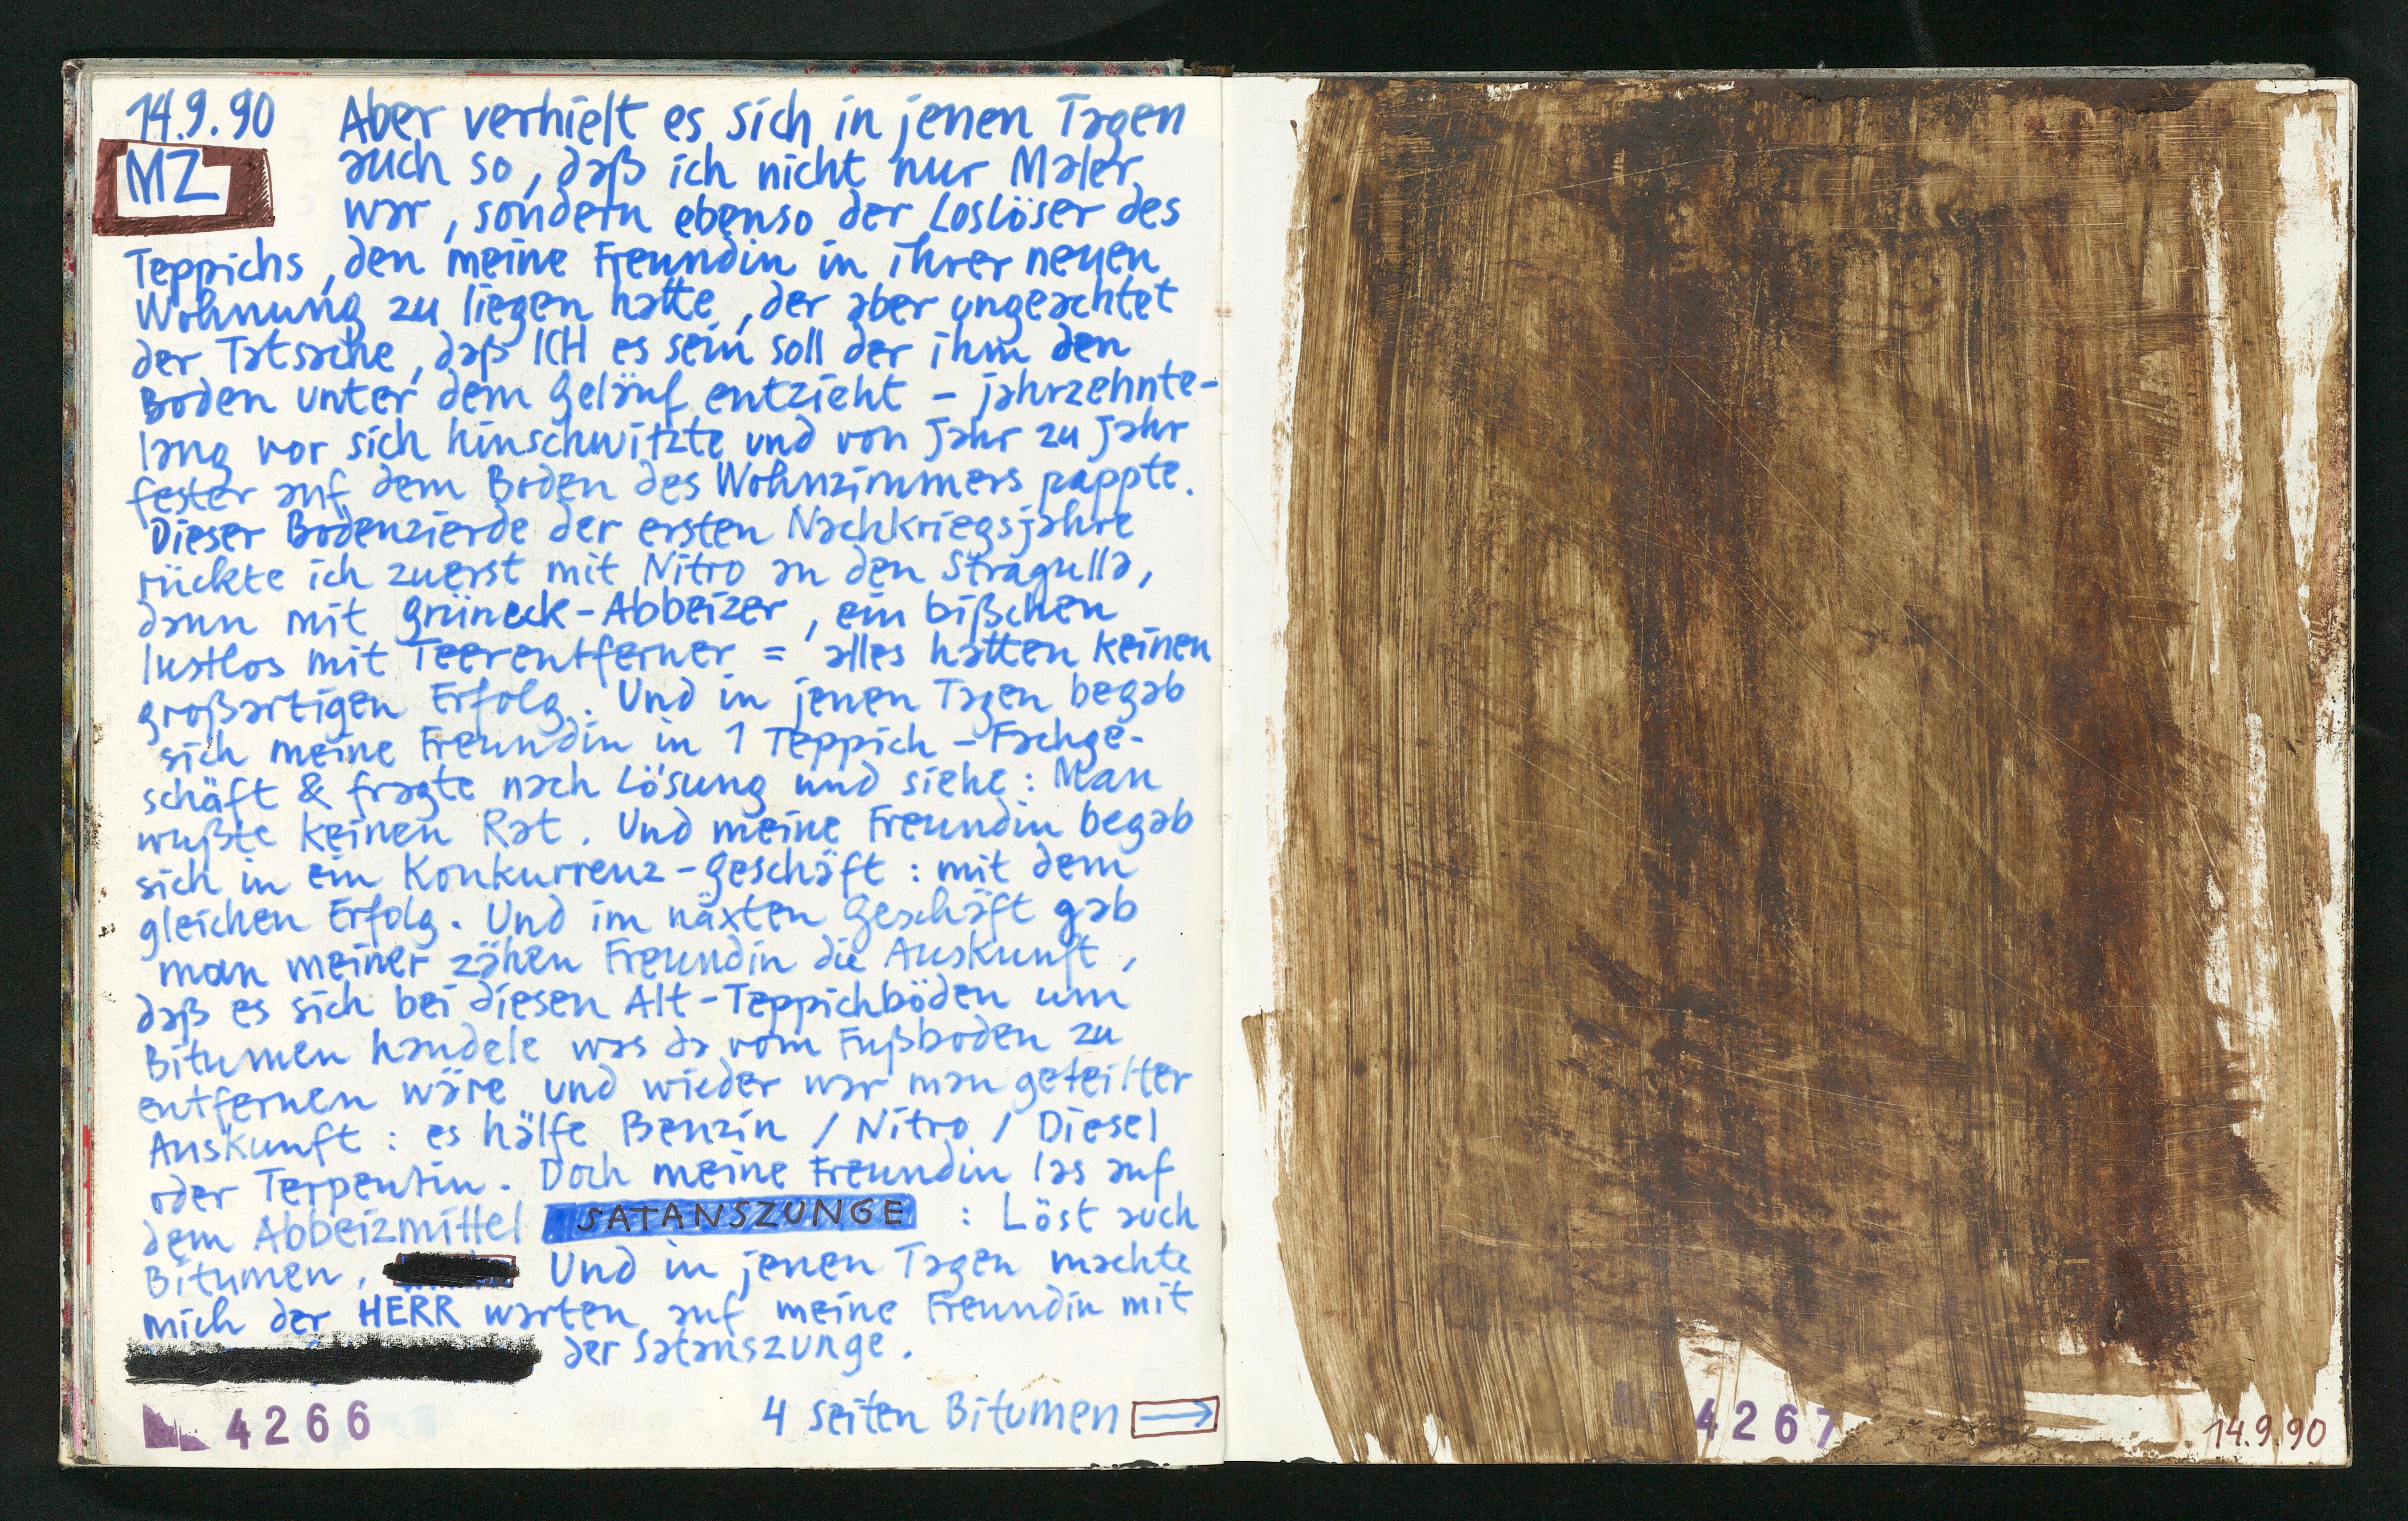 14.9.90 Aber verhielt es sich in jenen Tagen
MZ auch so, daß ich nicht nur Maler
war, sondern ebenso der Loslöser des
Teppichs, den meine Freundin in ihrer neuen
Wohnung zu liegen hatte, der aber ungeachtet
der Tatsache, daß ICH es sein soll der ihm den
Boden unter dem Geläuf entzieht – jahrzehnte-
lang vor sich hinschwitzte und von Jahr zu Jahr
fester auf dem Boden des Wohnzimmers pappte.
Dieser Bodenzierde der ersten Nachkriegsjahre
rückte ich zuerst mit Nitro an den Stragulla,
dann mit Grüneck-Abbeizer, ein bißchen
lustlos mit Teerentferner = alles hatten keinen
großartigen Erfolg. Und in jenen Tagen begab
sich meine Freundin in 1 Teppich-Fachge-
schäft & fragte nach Lösung und siehe: Man
wußte keinen Rat. Und meine Freundin begab
sich in ein Konkurrenz-Geschäft: mit dem
gleichen Erfolg. Und im näxten Geschäft gab
man meiner zähen Freundin die Auskunft,
daß es sich bei diesen Alt-Teppichböden um
Bitumen handele was da vom Fußboden zu
entfernen wäre und wieder war man geteilter
Auskunft: es hälfe Benzin / Nitro / Diesel
oder Terpentin. Doch meine Freundin las auf
dem Abbeizmittel SATANSZUNGE : Löst auch
Bitumen. Und in jenen Tagen machte
mich der HERR warten auf meine Freundin mit
der Satanszunge.
4 Seiten Bitumen →
4266
4267
14.9.90